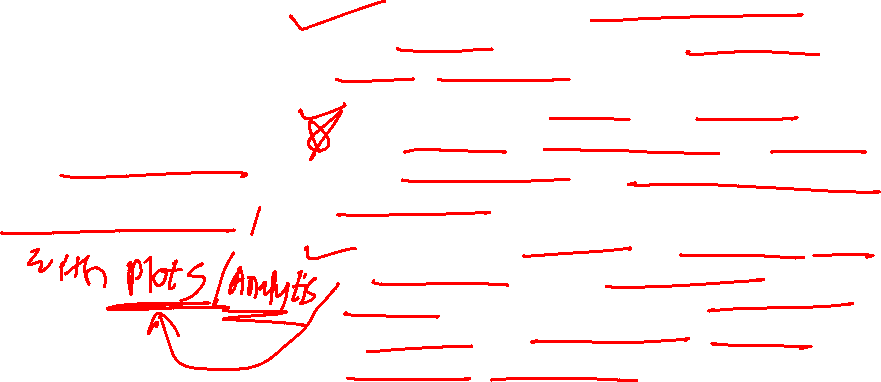 with plots/analytis